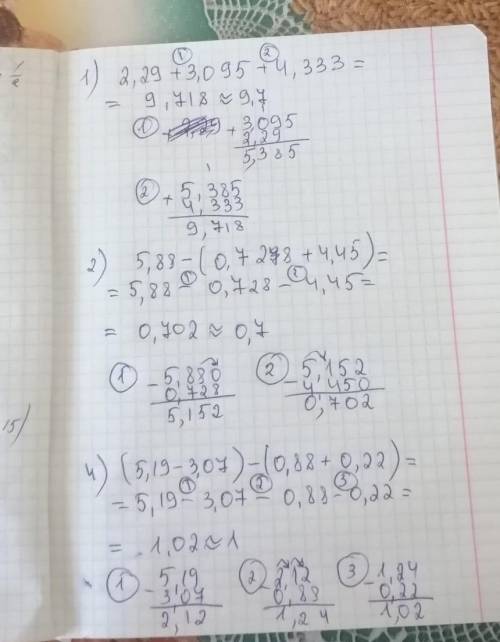 1) 2,29 + 3,095 + 4,333 =
= 9,718 ≈ 9,7
① + 3,095
2,29
5,385
② + 5,385
4,333
9,718
2) 5,88 - (0,728 + 4,45) =
= 5,88 - 0,728 - 4,45 =
= 0,702 ≈ 0,7
① - 5,880
0,728
5,152
② - 5,152
4,450
0,702
4) (5,19 - 3,07) - (0,88 + 0,22) =
= 5,19 - 3,07 - 0,88 - 0,22 =
= 1,02 ≈ 1
① - 5,19
3,07
2,12
② - 2,12
0,88
1,24
③ - 1,24
0,22
1,02
15)